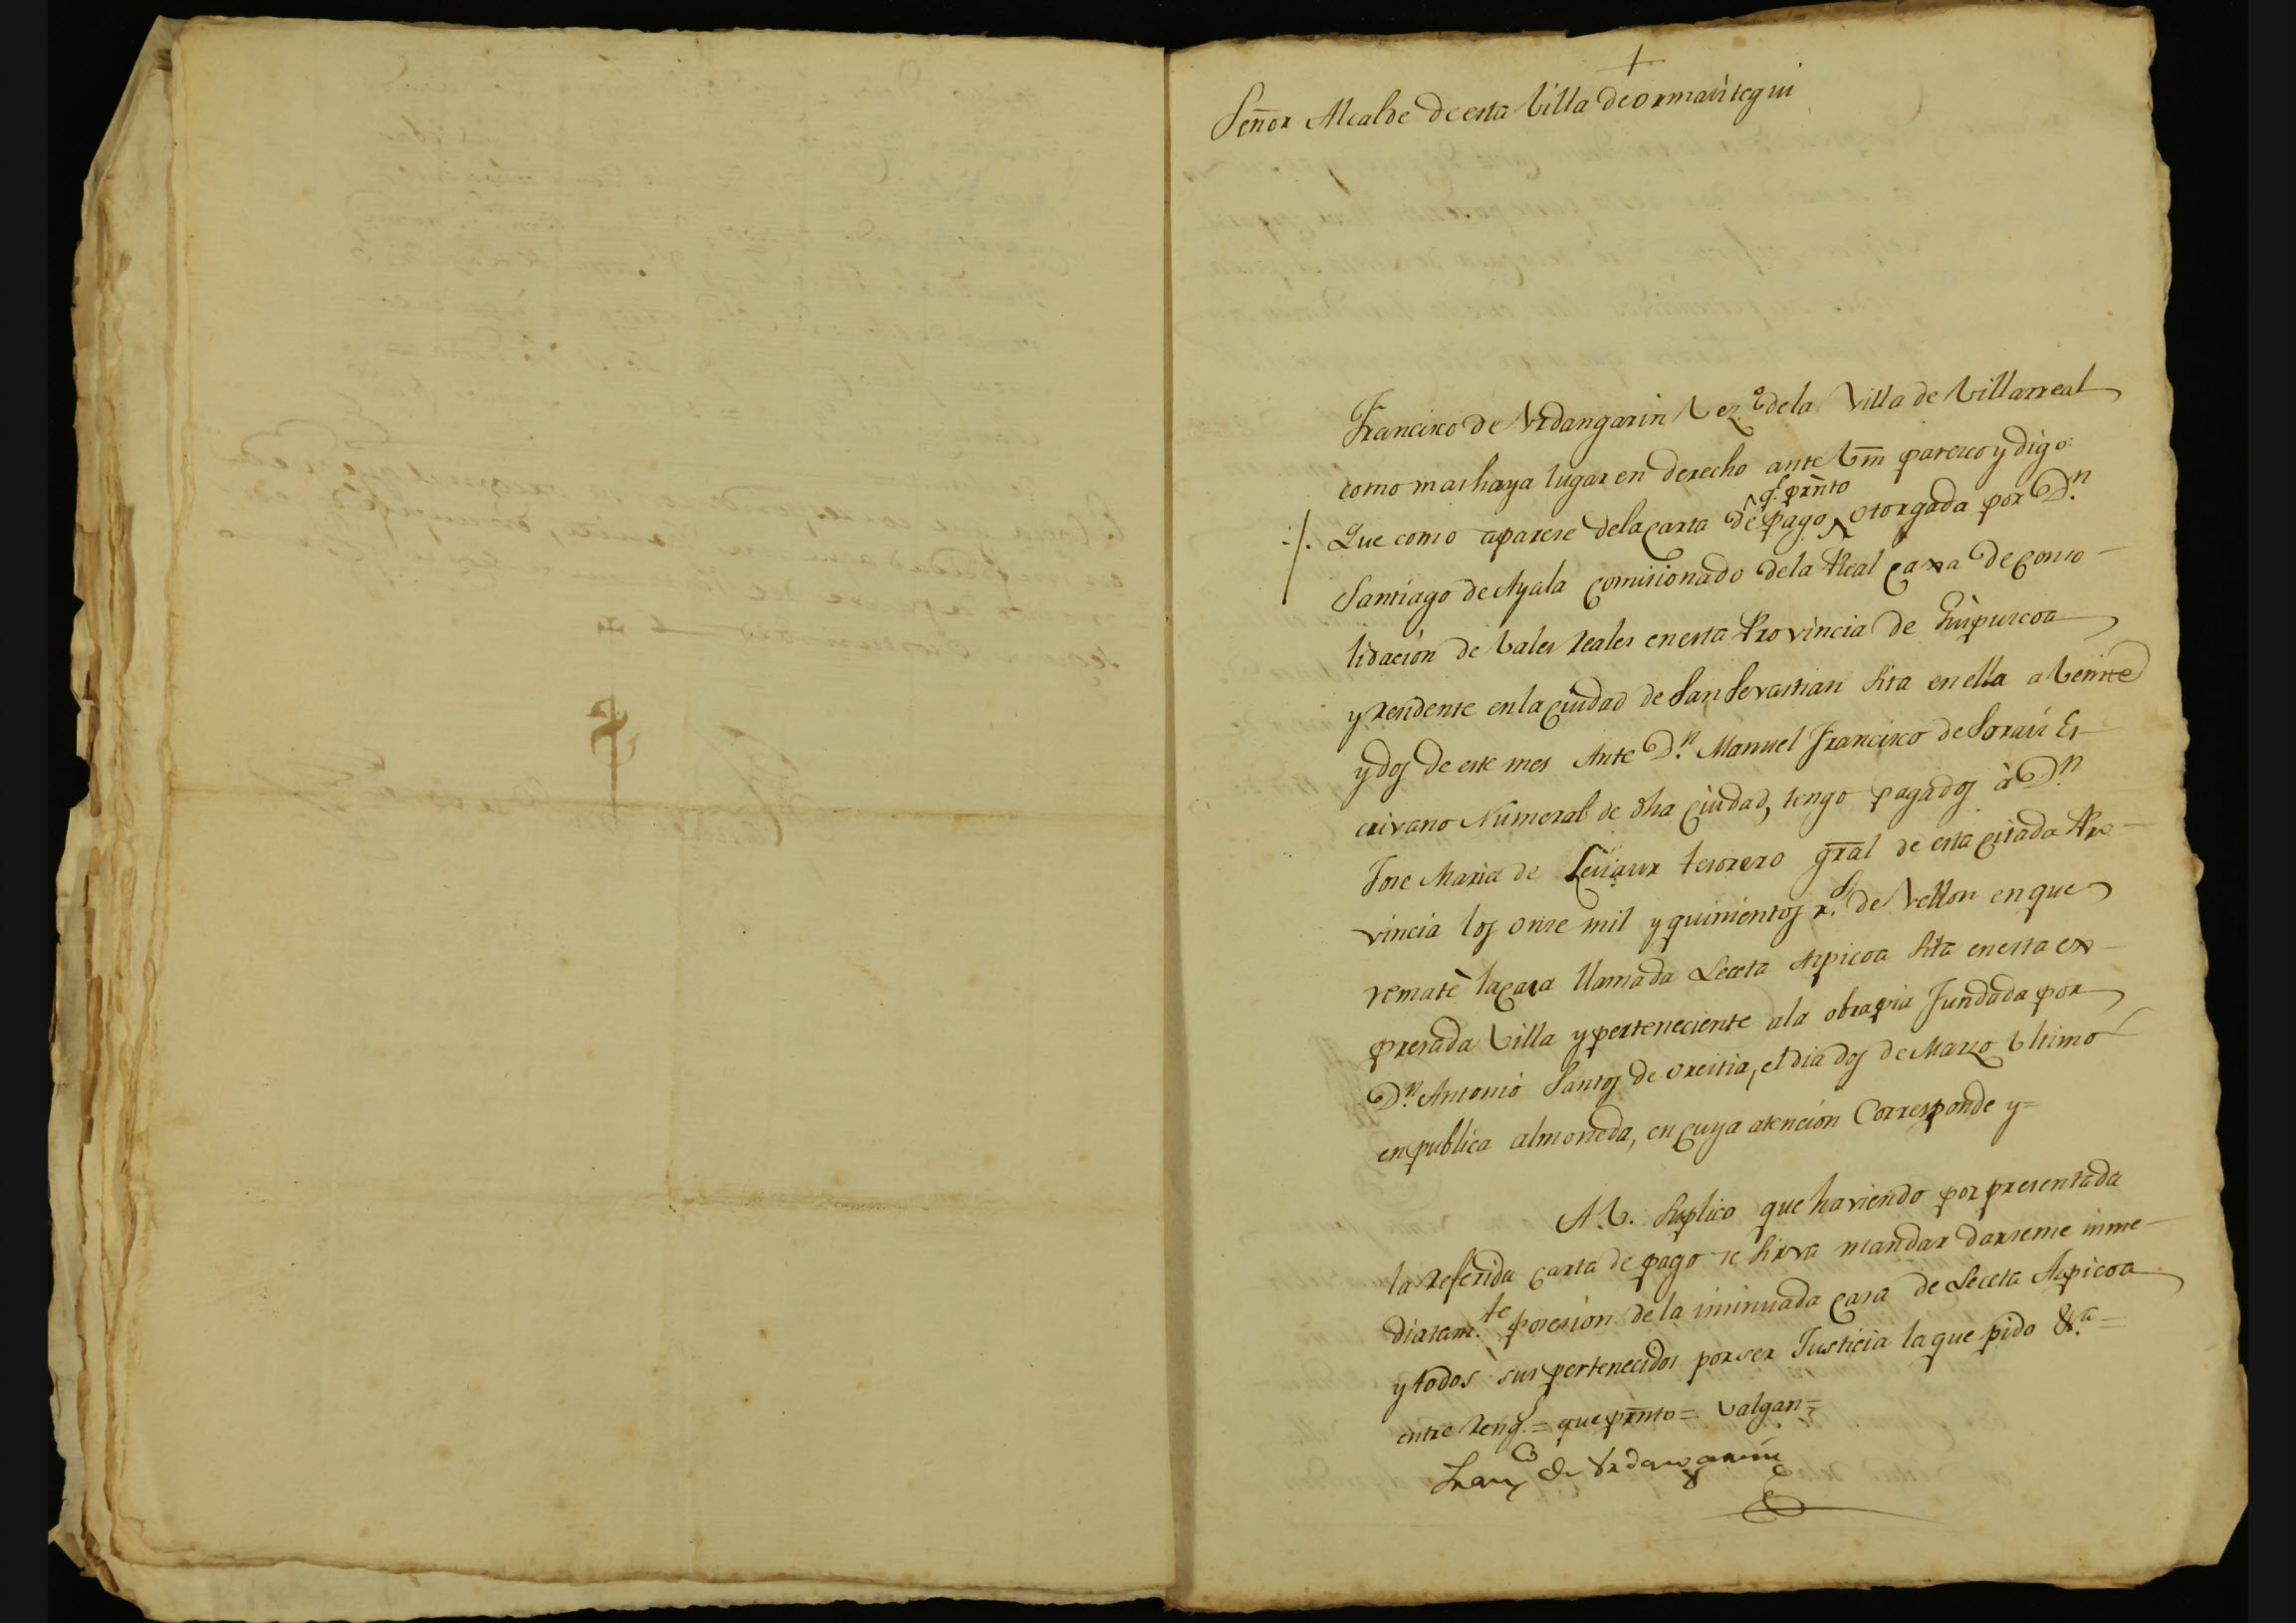 +
Señor Alcalde de esta Villa de ormaiztegui
Francisco de Vrdangarin Vez.º de la Villa de Villarreal
como mas haya lugar en derecho ante Vm paresco y digo:
Que como aparese de la carta de pago
q.e prñto
otorgada por D.n
Santiago de Ayala Comisionado de la Real Caxa de Conso-
lidacion de Vales reales en esta Provincia de Guipuscoa
y residente en la Ciudad de San Sevastian sita en ella a Veinte
y dos de este mes Ante D.n Manuel Francisco de Soraiz Es-
crivano Numeral de dha Ciudad, tengo pagados à D.n
Jose Maria de tesorero gral de esta citada Pro-
vincia los onse mil y quinientos r.s de Vellon en que
rematè la casa llamada Leceta Aspicoa sita en esta ex-
presada Villa y perteneciente ala obrapia Fundada por
D.n Antonio Santos de oreitia, el dia dos de Marzo Vltimo
en publica almoneda, en cuya atencion Corresponde y=
A V. Suplico que haviendo por presentada
la referida Carta de pago se sirva mandar darseme inme-
diatam.te posesion de la insinuada Casa de Leceta Aspicoa
y todos sus pertenecidos por ser Justicia la que pido &.a=
entre reng.s = que prñto = Valgan=
Fran.co de Vrdangarin